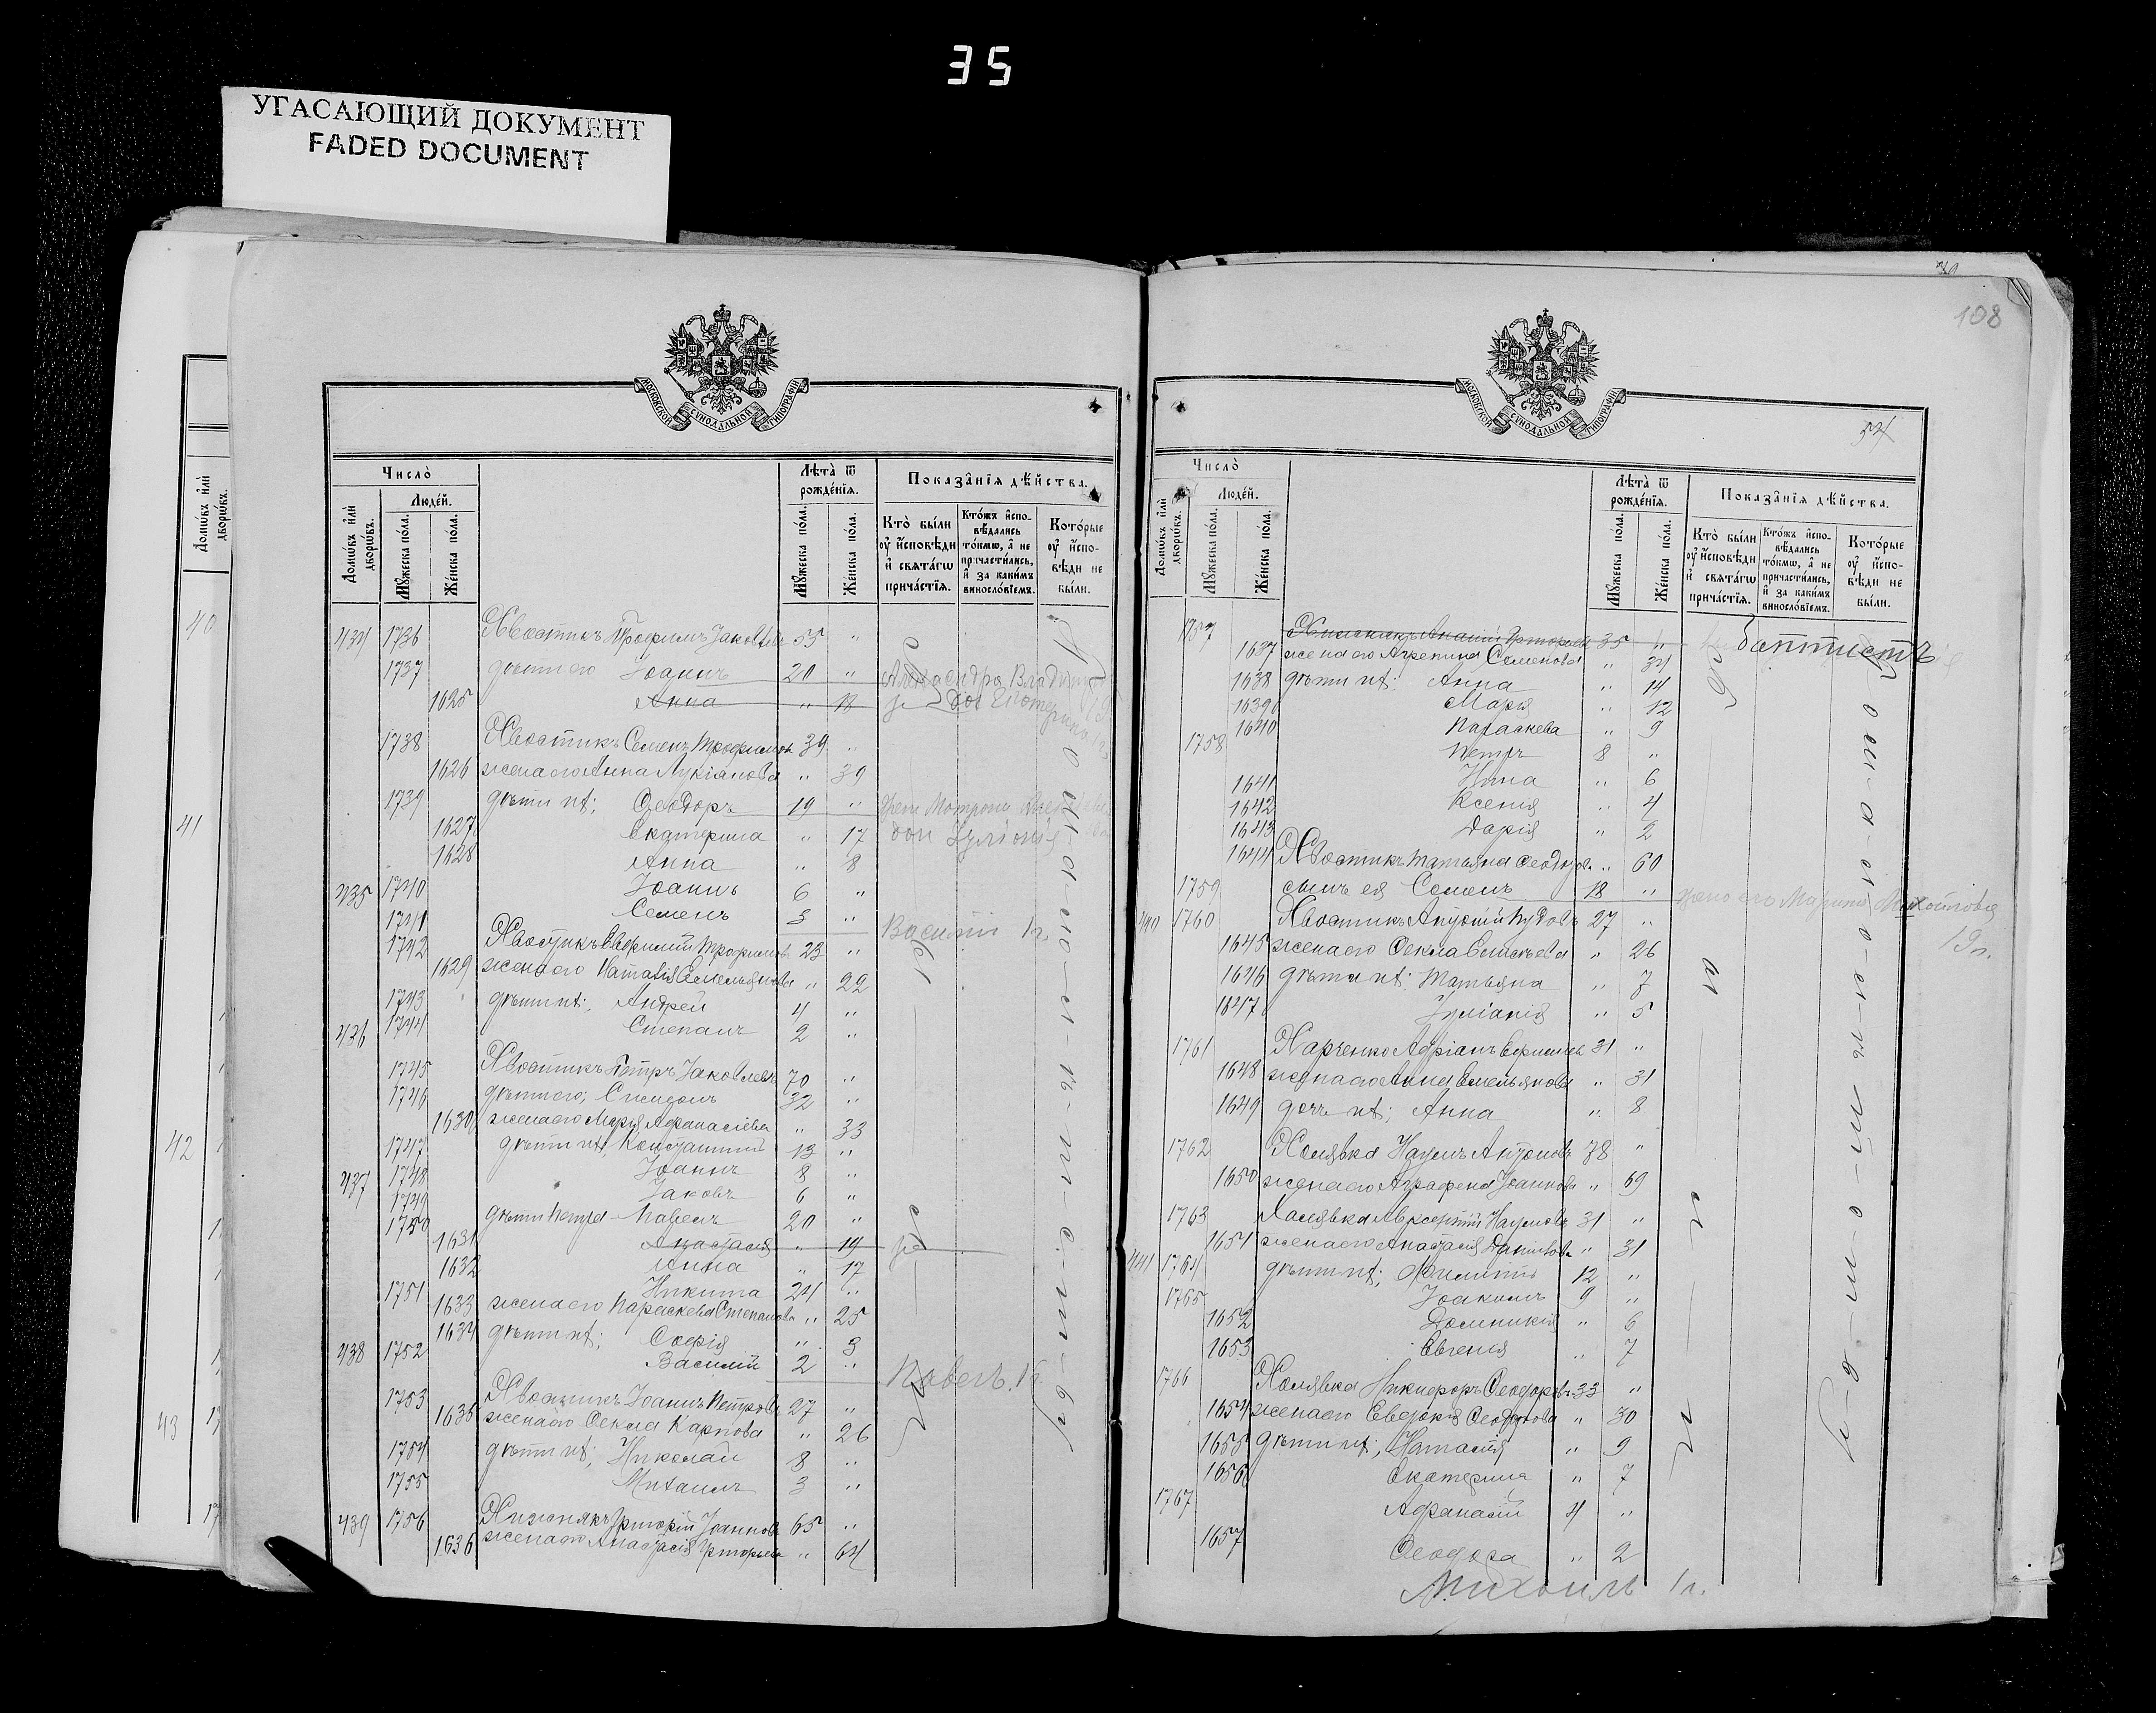 35
УГАСАЮЩИЙ ДОКУМЕНТ
FADED DOCUMENT
40
41
42
43
МОСКОВСКОЙ СѴНОДАЛЬНОЙ ТИПОГРАФІИ
Число̀
Люде́й.
Домѡ́въ и҆лѝ дворѡ́въ.
Мꙋ́жеска по́ла.
Же́нска по́ла.
Лѣ́та ѿ рожде́нїѧ.
Мꙋ́жеска по́ла.
Же́нска по́ла.
Показа̑нїѧ дѣ́йства.
Кто̀ бы́ли оу҆ и҆сповѣ́ди и҆ свѧта́гѡ прича́стїѧ.
Кто́жъ и҆сповѣ́дались то́кмѡ, а҆ не причасти́лись, и҆ за каки́мъ винословїемъ.
Кото́рые оу҆ и҆споⷡ҇ѣди не бы́ли.
434 1736 Хвостикъ Трофимъ Іаковлевъ 55 "
1737 дѣти его Іоаннъ 20 " Александра
1625 Анна " 18
1738 Хвостикъ Семенъ Трофимовъ 39 "
1626 жена его Анна Лукіанова " 39
1739 дѣти ихъ: Ѳеодоръ 19 " жена Матрона
1627 Екатерина " 17 дочь Іуліанія
1628 Анна " 8
435 1740 Іоаннъ 6 "
1741 Семенъ 3 " Василій 1 г.
1742 Хвостикъ Евфимій Трофимовъ 23 "
1629 жена его Наталія Емельянова " 22
1743 дѣти ихъ: Андрей 4 "
436 1744 Степанъ 2 "
1745 Хвостикъ Петръ Іаковлевъ 70 "
1746 дѣти его; Спиридонъ 32 "
1630 жена его Марія Афанасіева " 33
1747 дѣти ихъ, Константинъ 13 "
437 1748 Іоаннъ 8 "
1749 Іаковъ 6 "
1750 дѣти Петра Павелъ 20 "
1631 Анастасія " 19
1632 Анна " 17
1751 Никита 24 "
1633 жена его Параскева Степанова " 25
1634 дѣти ихъ; Софія " 3
438 1752 Василій 2 " Павелъ. 1 г.
1753 Хвостикъ Іоаннъ Петровъ 27 "
1635 жена его Ѳекла Карпова " 26
1754 дѣти ихъ; Николай 8 "
1755 Михаилъ 3 "
439 1756 Хижнякъ Григорій Іоанновъ 65 "
1636 жена его Анастасія Григорьева " 64
108
54
МОСКОВСКОЙ СѴНОДАЛЬНОЙ ТИПОГРАФІИ
Число̀
Люде́й.
Домѡ́въ и҆лѝ дворѡ́въ.
Мꙋ́жеска по́ла.
Же́нска по́ла.
Лѣ́та ѿ рожде́нїѧ.
Мꙋ́жеска по́ла.
Же́нска по́ла.
Показа̑нїѧ дѣ́йства.
Кто̀ бы́ли оу҆ и҆сповѣ́ди и҆ свѧта́гѡ прича́стїѧ.
Кто́жъ и҆сповѣ́дались то́кмѡ, а҆ не причасти́лись, и҆ за каки́мъ винословїемъ.
Кото́рые оу҆ и҆сповѣ́ди не бы́ли.
1757 Хижнякъ Ананій Григорьевъ 35 " баптистъ
1637 жена его Агрепина Семенова " 34
1638 дѣти ихъ: Анна " 14
1639 Марія " 12
1640 Параскева " 9
1758 Петръ 8 "
1641 Нина " 6
1642 Ксенія " 4
1643 Дарія " 2
1644 Хвостикъ Татьяна Ѳеодорова " 60
1759 сынъ ея Семенъ 18 " жена его Марина 19 л.
440 1760 Хвостикъ 27 "
1645 жена его Ѳекла " 26
1646 дѣти ихъ: Татьяна " 7
1647 Іуліанія " 5
1761 Харченко Адріанъ Ефимовъ 31 "
1648 жена его Анна Емельянова " 31
1649 дочь ихъ; Анна " 8
1762 Халявка Наумъ Антоновъ 78 "
1650 жена его Аграфена Іоаннова " 69
1763 Халявка Авксентій Наумовъ 31 "
1651 жена его Анастасія Данилова " 31
441 1764 дѣти ихъ; Филиппъ 12 "
1765 Іоакимъ 9 "
1652 Домникія " 6
1653 Евгенія " 7
1766 Халявка Никифоръ Ѳеодоровъ 33 "
1654 жена его Евдокія Ѳеодорова " 30
1655 дѣти ихъ; Наталія " 9
1656 Екатерина " 7
1767 Афанасій 4 "
1657 Ѳеодора " 2
Михаилъ 1 г.